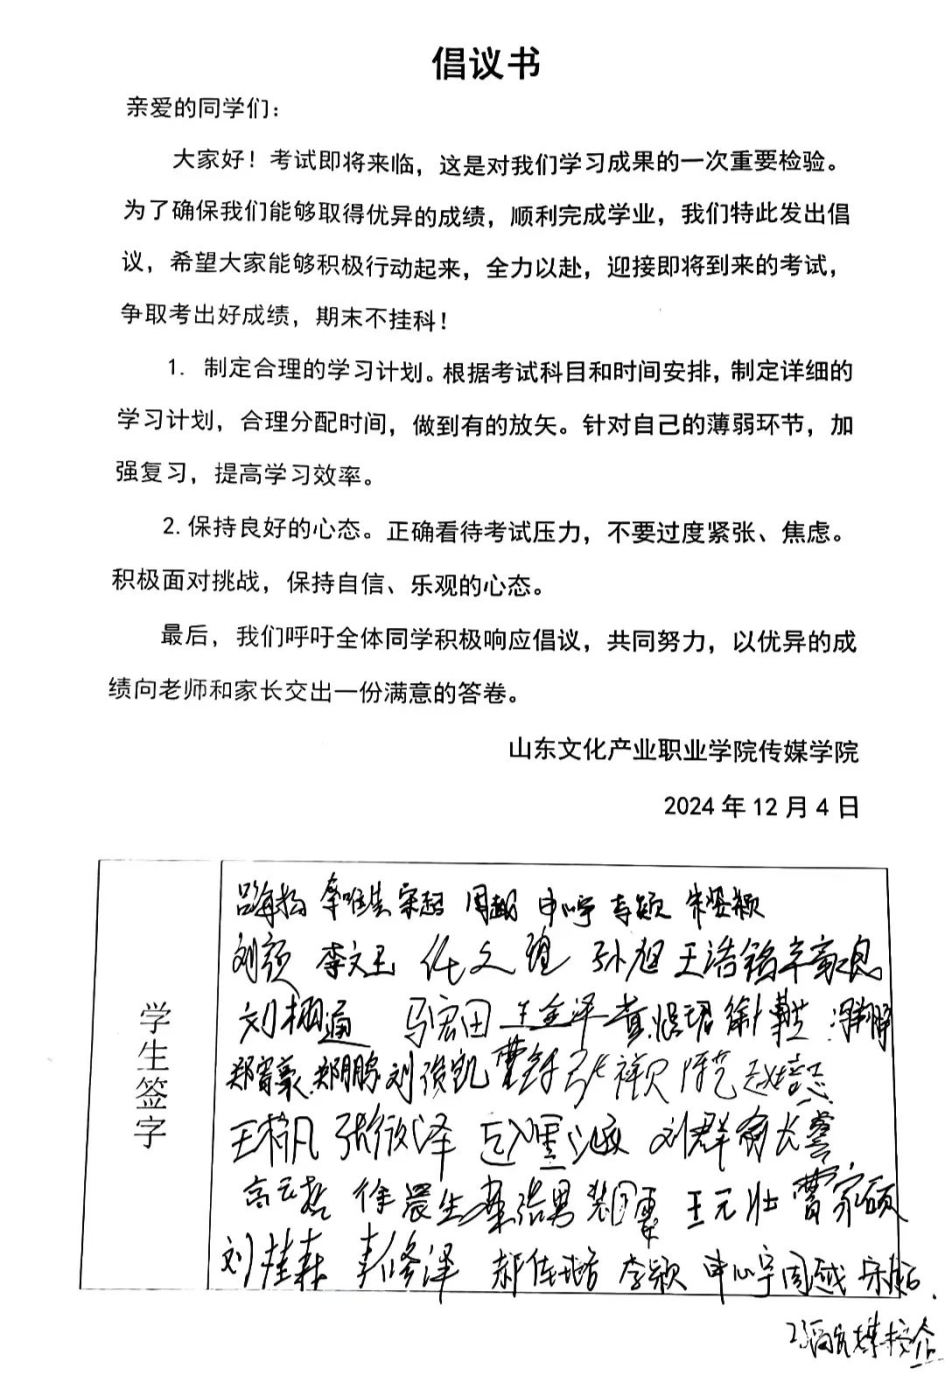 倡议书
亲爱的同学们：
大家好！考试即将来临，这是对我们学习成果的一次重要检验。
为了确保我们能够取得优异的成绩，顺利完成学业，我们特此发出倡
议，希望大家能够积极行动起来，全力以赴，迎接即将到来的考试，
争取考出好成绩，期末不挂科！
1. 制定合理的学习计划。根据考试科目和时间安排，制定详细的
学习计划，合理分配时间，做到有的放矢。针对自己的薄弱环节，加
强复习，提高学习效率。
2.保持良好的心态。正确看待考试压力，不要过度紧张、焦虑。
积极面对挑战，保持自信、乐观的心态。
最后，我们呼吁全体同学积极响应倡议，共同努力，以优异的成
绩向老师和家长交出一份满意的答卷。
山东文化产业职业学院传媒学院
2024 年 12 月 4 日
学生签字
申心宇
刘颖 李文玉 任文 孙旭 王浩铭
马宏田 王金泽
郑鹏 刘俊凯
刘群
高云哲 徐晨生 王元壮 曹家硕
刘桂森 李颖 申心宇 周越